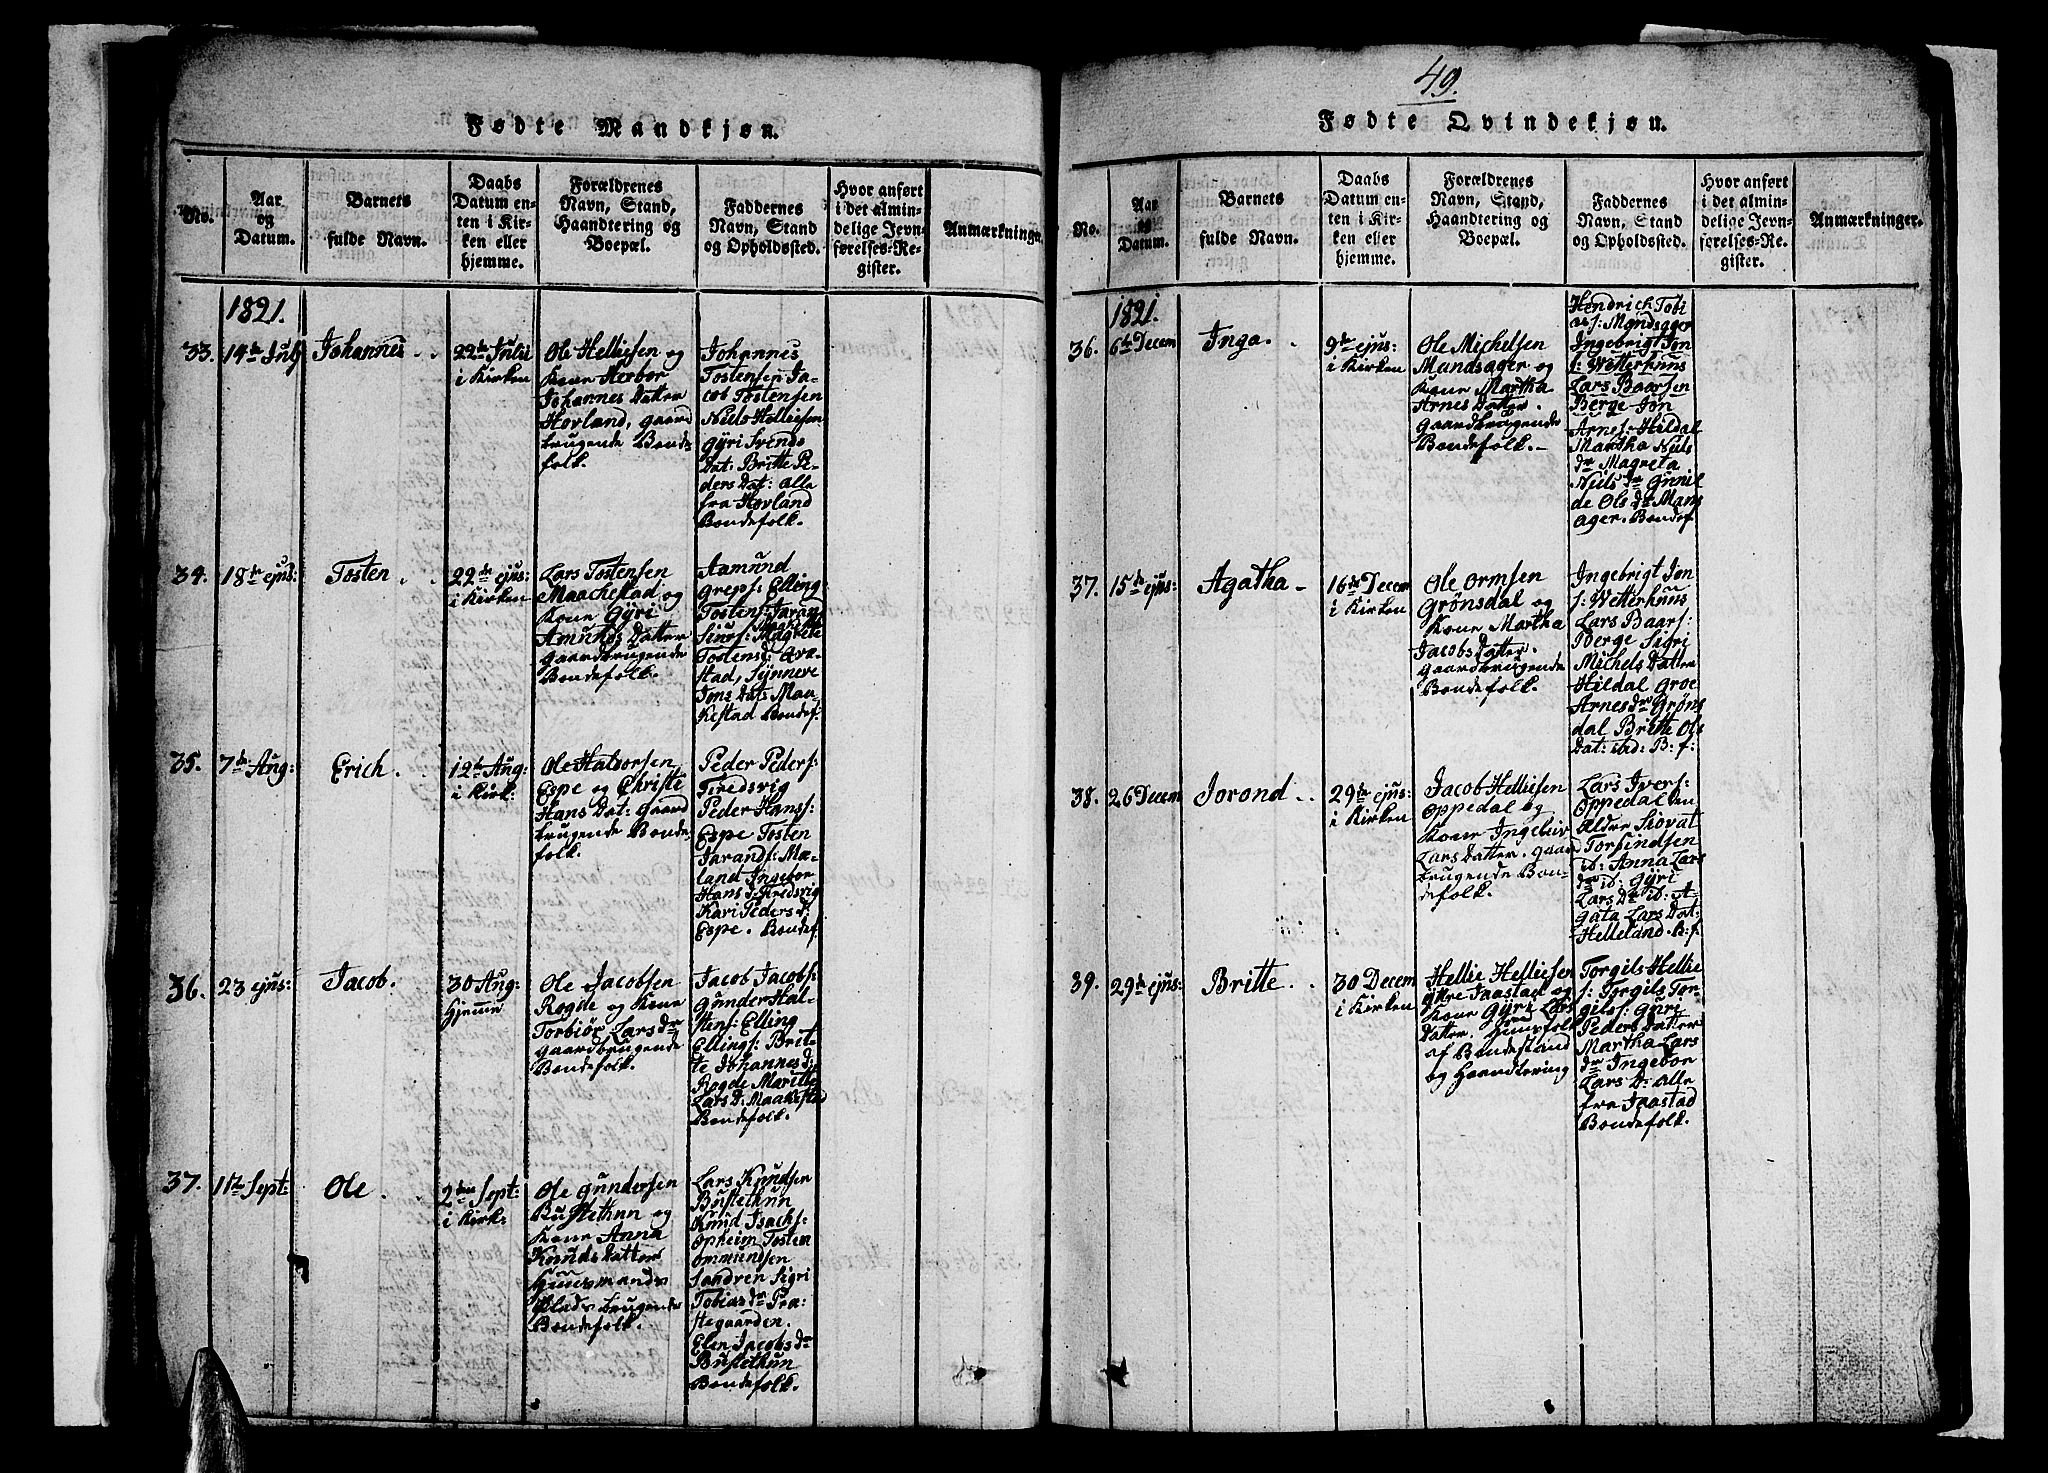 49.
Fødte Mandkjøn.
No.
Aar
og
Datum.
Barnets
fulde Navn.
Daabs
Datum en-
ten i Kir-
ken eller
hjemme.
Forældrenes
Navn, Stand,
Haandtering og
Boepæl.
Faddernes
Navn, Stand
og Opholdssted.
Hvor anført
i det almin-
delige Jevn-
førelses-Re-
gister.
Anmærkninger.
1821.
33.
14de Julj
Johannes
22de Julii
i Kirken
Ole Helliesen og
Kone Herbor
Johannes Datter
Hovland, gaard
brugende Bonde
folk.
Johannes
Tostensen Ja-
cob Tostensen
Niels Helliesen
Gÿri Svends
Dat: Britte Pe-
ders Dat: alle
fra Hovland
Bondefolk.
34.
18de ejus:
Tosten
22de ejus:
i Kirken
Lars Tostensen
Maachestad og
Kone Gÿri
Amunds Datter
gaardbrugende
Bondefolk.
Aamund
Greps: Elling
Tostens: Jaran
Siurs: Magrete
Tostensd:
stad, Synneve
Jons Dat: Maa
kestad Bondef:
35.
7de Aug:
Erich.
12te Aug:
i Kirk:
Ole Halvorsen
Espe og Christi
Hans Dat: gaard
brugende Bonde
folk.
Peder Peders:
Tiredsvig
Peder Hans:
Espe Tosten
Jarands: Ma-
land Ingebor
Hans d: Tiredsvig
Kari Peders d:
Espe. Bondef:
36.
23 ejus:
Jacob.
30 Aug:
Hjemme
Ole Jacobsen
Rogde og Kone
Torbiør Lars dr
gaardbrugende
Bondefolk.
Jacob Jacobs:
Gunder Hal-
stens: Elling
Ellings: Brit-
te Johannes d:
Rogde Maritte
Lars D: Maakestad
Bondefolk.
37.
1te Sept:
Ole
2den Sept:
i Kirk:
Ole Gundersen
Bustethun og
Kone Anna
Knuds Datter
Huusmands
Plads brugende
Bondefolk.
Lars Knudsen
Bustethun
Knud Isachs:
Opheim Tosten
Ommundsen
Sandven Sigri
Tobias dr Præ-
stegaarden.
Elen Jacobs dr
Bustethun
Bondefolk.
Fødte Qvindekjøn.
No.
Aar
og
Datum.
Barnets
fulde Navn.
Daabs
Datum en-
ten i Kir-
ken eller
hjemme.
Forældrenes
Navn, Stand,
Haandtering og
Boepæl.
Faddernes
Navn, Stand
og Opholdssted.
Hvor anført
i det almin-
delige Jevn-
førelses-Re-
gister.
Anmærkninger.
1821.
36.
6te Decem
Inga.
9de ejus:
i Kirken
Ole Michelsen
Mundsager og
Kone Martha
Arnes Datter.
gaardbrugende
Bondefolk.
Hendrich Tobi
as s: Mandsager
Ingebrigt Jon
s: Wetterhuus
Lars Baarsen
Berge Jon
Arnes: Hildal
Martha Niels
dr Magreta
Niels dr Gunil
de Ols dr Mans
ager. Bondef.
37.
15de ejus:
Agatha
16de Decem
i Kirken
Ole Ormsen
Grønsdal og
Kone Martha
Jacobs Datter.
gaardbrugende
Bondefolk.
Ingebrigt Jon
s: Wetterhuus
Lars Baars:
Berge Sigri
Michels Datter
Hildal Groe
Arnes dr Grøns
dal Britte Ols
Dat: ibid: B: f:
38.
26 Decem
Jorond
29de ejus:
i Kirken
Jacob Helliesen
Oppedal og
Kone Ingebor
Lars Datter. gaard
brugende Bon-
defolk.
Lars Ivers:
Oppedal den
Ældre Siovat
Torfindsen
ib: Anna Lars
dr ib: Gÿri
Lars Dr ib: A-
gata Lars Dat:
Helleland. B: f:
39.
29de ejus:
Britte
30 Decem
i Kirken
Hellie Helliesen
Ÿtre Jaastad og
Kone Gÿri Lars
Datter. Huusfolk
af Bondestand
og Haandtering
Torgils Hellie
s: Torgils Tor-
gils: Guri
Peders Datter
Martha Lars
dr Ingebor
Lars Dr alle
fra Jaastad
Bondefolk.